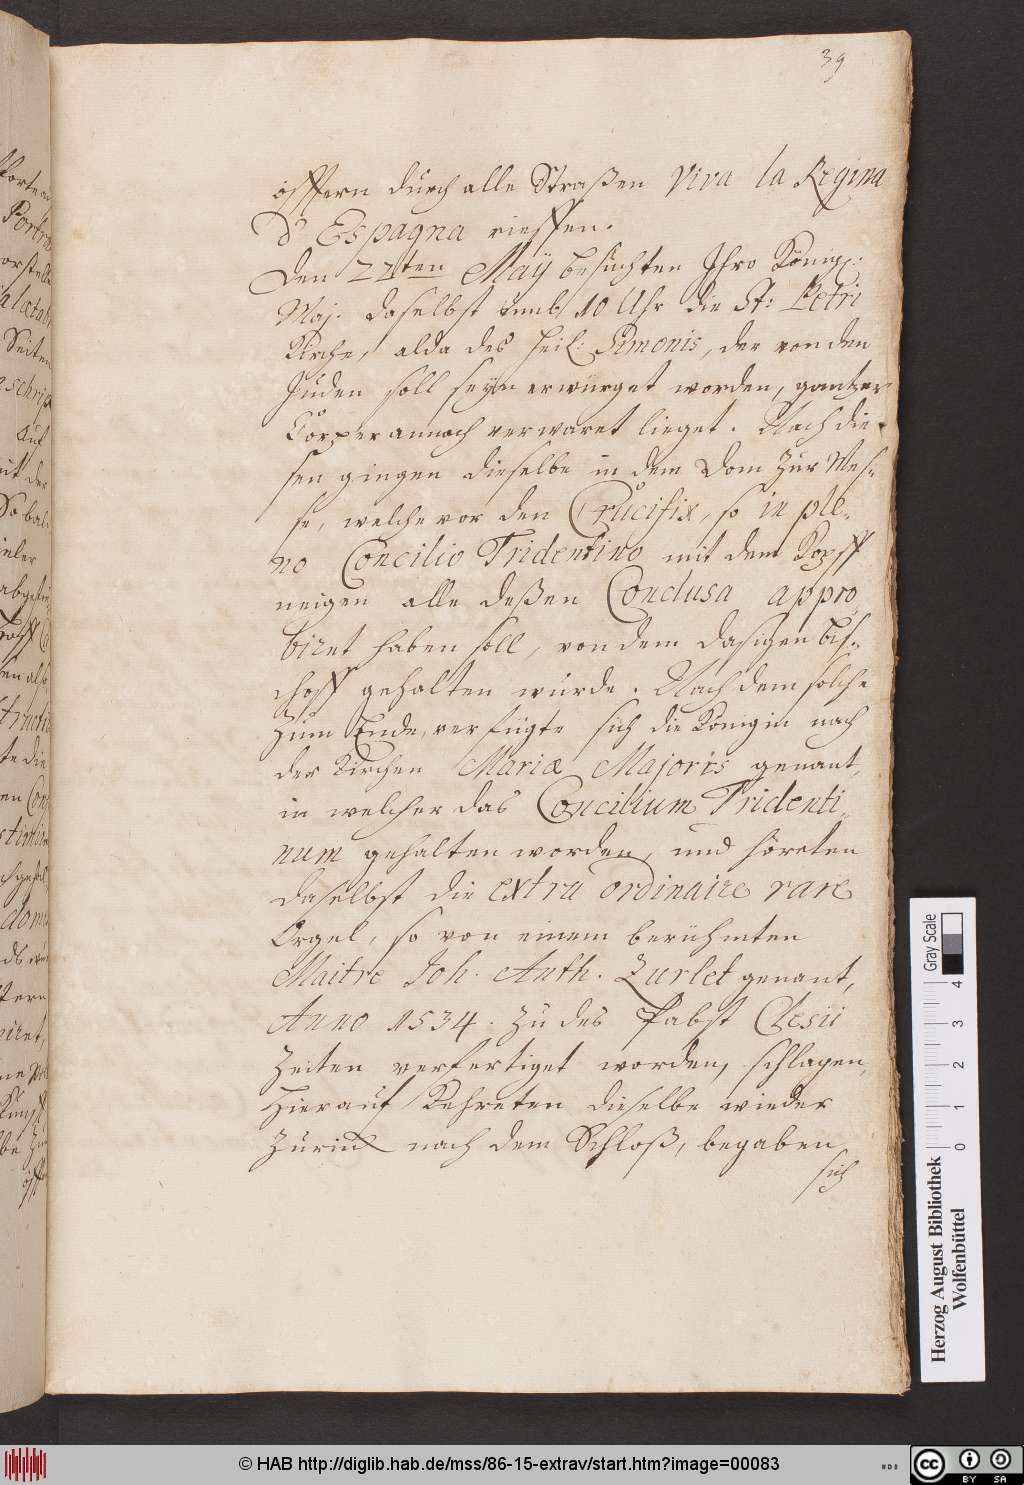 39
öfftern durch alle Straßen Viva la Regina
d' Espagna rieffen.
Den 22ten Maÿ besuchten Ihro Königl:
Maj. daselbst umb 10 Uhr die St: Petri
Kirche, alda des heil: Simonis, der von den
Juden soll seyn erwürget worden, gantzer
Cörper annoch verwaret lieget. Nach die-
sen gingen dieselbe in dem Dom zur Mes-
se, welche vor den Crucifix, so in ple-
no Concilio Tridentino mit dem Kopff
neigen alle deßen Conclusa appro-
biret haben soll, von dem dasigen Bi-
schoff gehalten wurde. Nachdem solche
zum Ende, verfügte sich die Königin nach
der Kirchen Mariæ Majoris genant,
in welcher das Concilium Tridenti-
num gehalten worden, und höreten
daselbst die extra ordinaire rare
Orgel, so von einem berühmten
Maitre Joh. Anth. Zurlet genant,
Anno 1534. zu des Pabst Clesii
Zeiten verfertiget worden, schlagen,
Hierauf kehreten dieselbe wieder
zurück nach dem Schloß, begaben
sich
Gray Scale
0 1 2 3 4
Herzog August Bibliothek
Wolfenbüttel
© HAB http://diglib.hab.de/mss/86-15-extrav/start.htm?image=00083
cc BY SA